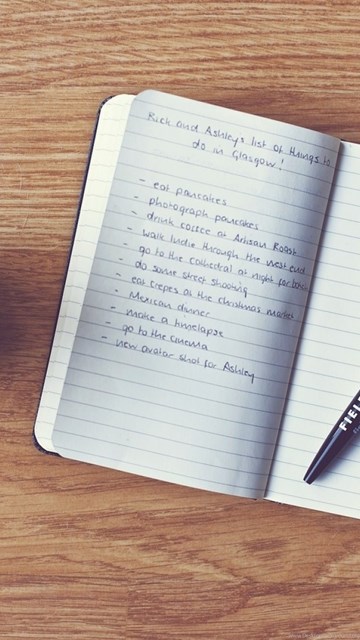 Rick and Ashley's list of things to
do in Glasgow!
- eat pancakes
- photograph pancakes
- drink coffee at Artisan Roast
- walk Indie through the west end
- go to the cathedral at night for
- do some street shooting
- eat crepes at the christmas market
- Mexican dinner
- make a timelapse
- go to the cinema
- new avatar shot for Ashley
FIEL